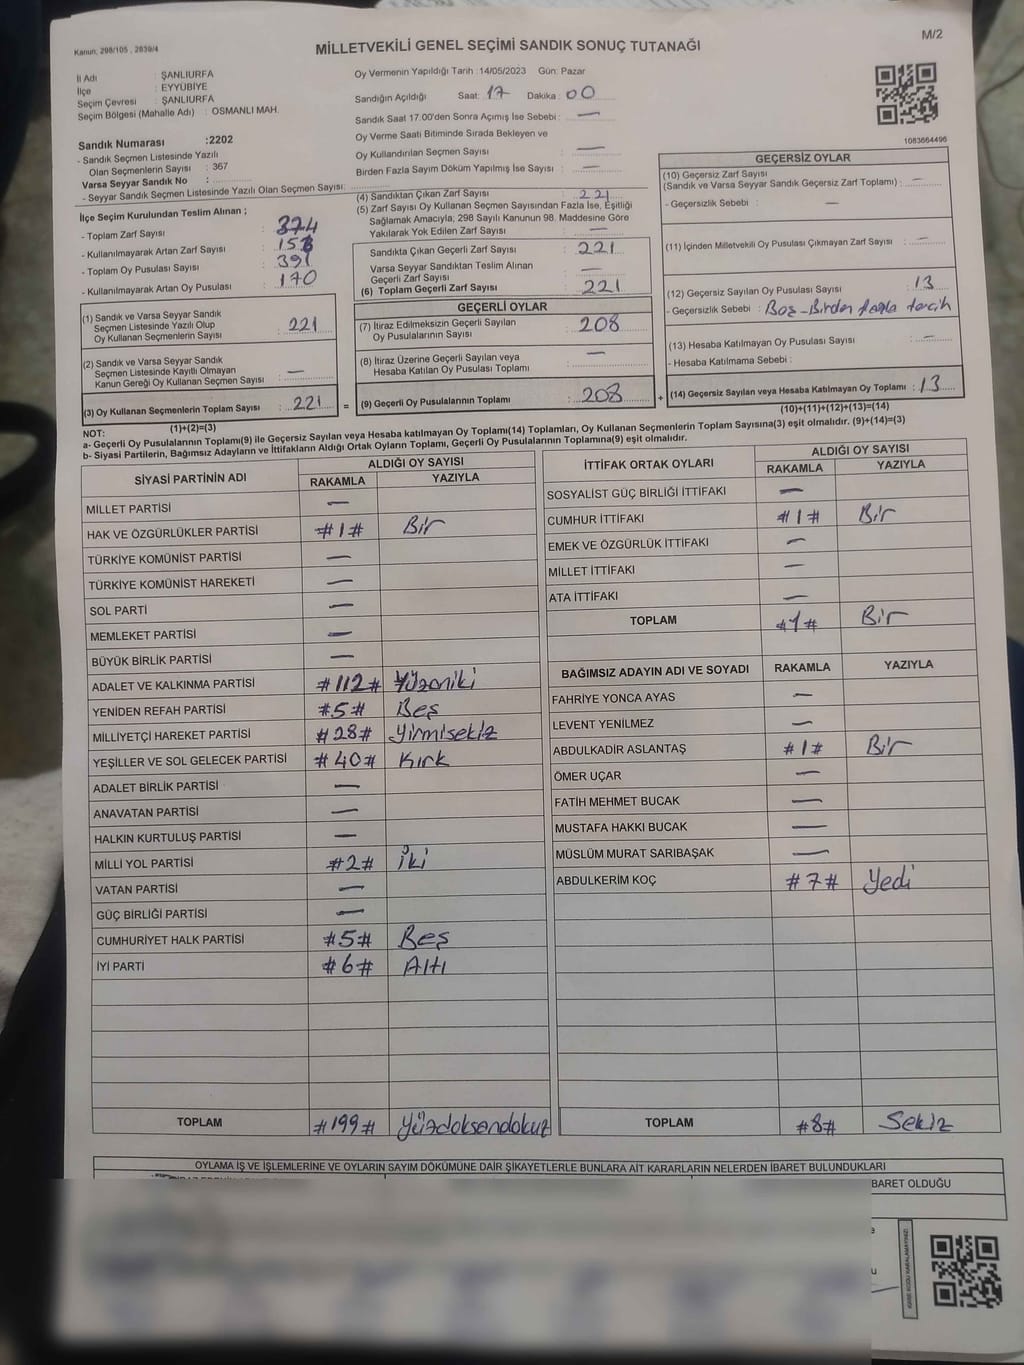 Kanun, 298/105 , 2839/4
MİLLETVEKİLİ GENEL SEÇİMİ SANDIK SONUÇ TUTANAĞI
M/2
İl Adı : ŞANLIURFA
İlçe : EYYÜBİYE
Seçim Çevresi : ŞANLIURFA
Seçim Bölgesi (Mahalle Adı) : OSMANLI MAH.
Sandık Numarası :2202
- Sandık Seçmen Listesinde Yazılı
Olan Seçmenlerin Sayısı : 367
Varsa Seyyar Sandık No :
- Seyyar Sandık Seçmen Listesinde Yazılı Olan Seçmen Sayısı:
İlçe Seçim Kurulundan Teslim Alınan ;
- Toplam Zarf Sayısı : 374
- Kullanılmayarak Artan Zarf Sayısı :
- Toplam Oy Pusulası Sayısı : 391
- Kullanılmayarak Artan Oy Pusulası : 170
(1) Sandık ve Varsa Seyyar Sandık
Seçmen Listesinde Yazılı Olup
Oy Kullanan Seçmenlerin Sayısı : 221
(2) Sandık ve Varsa Seyyar Sandık
Seçmen Listesinde Kayıtlı Olmayan
Kanun Gereği Oy Kullanan Seçmen Sayısı : —
(3) Oy Kullanan Seçmenlerin Toplam Sayısı : 221 =
(1)+(2)=(3)
Oy Vermenin Yapıldığı Tarih : 14/05/2023 Gün: Pazar
Sandığın Açıldığı Saat: 17 Dakika: 00
Sandık Saat 17.00'den Sonra Açımış İse Sebebi : —
Oy Verme Saati Bitiminde Sırada Bekleyen ve
Oy Kullandırılan Seçmen Sayısı : —
Birden Fazla Sayım Döküm Yapılmış İse Sayısı : —
(4) Sandıktan Çıkan Zarf Sayısı : 221
(5) Zarf Sayısı Oy Kullanan Seçmen Sayısından Fazla İse, Eşitliği
Sağlamak Amacıyla, 298 Sayılı Kanunun 98. Maddesine Göre
Yakılarak Yok Edilen Zarf Sayısı : —
Sandıkta Çıkan Geçerli Zarf Sayısı : 221
Varsa Seyyar Sandıktan Teslim Alınan
Geçerli Zarf Sayısı : —
(6) Toplam Geçerli Zarf Sayısı : 221
GEÇERLİ OYLAR
(7) İtiraz Edilmeksizin Geçerli Sayılan
Oy Pusulalarının Sayısı : 208
(8) İtiraz Üzerine Geçerli Sayılan veya
Hesaba Katılan Oy Pusulası Toplamı : —
(9) Geçerli Oy Pusulalarının Toplamı : 208 +
1083664496
GEÇERSİZ OYLAR
(10) Geçersiz Zarf Sayısı
(Sandık ve Varsa Seyyar Sandık Geçersiz Zarf Toplamı) : —
- Geçersizlik Sebebi : —
(11) İçinden Milletvekili Oy Pusulası Çıkmayan Zarf Sayısı : —
(12) Geçersiz Sayılan Oy Pusulası Sayısı : 13
- Geçersizlik Sebebi : Boş-Birden fazla tercih
(13) Hesaba Katılmayan Oy Pusulası Sayısı : —
- Hesaba Katılmama Sebebi :
(14) Geçersiz Sayılan veya Hesaba Katılmayan Oy Toplamı : 13
(10)+(11)+(12)+(13)=(14)
NOT:
a- Geçerli Oy Pusulalarının Toplamı(9) ile Geçersiz Sayılan veya Hesaba katılmayan Oy Toplamı(14) Toplamları, Oy Kullanan Seçmenlerin Toplam Sayısına(3) eşit olmalıdır. (9)+(14)=(3)
b- Siyasi Partilerin, Bağımsız Adayların ve İttifakların Aldığı Ortak Oyların Toplamı, Geçerli Oy Pusulalarının Toplamına(9) eşit olmalıdır.
SİYASİ PARTİNİN ADI ALDIĞI OY SAYISI
RAKAMLA YAZIYLA
MİLLET PARTİSİ —
HAK VE ÖZGÜRLÜKLER PARTİSİ #1# Bir
TÜRKİYE KOMÜNİST PARTİSİ —
TÜRKİYE KOMÜNİST HAREKETİ —
SOL PARTİ —
MEMLEKET PARTİSİ —
BÜYÜK BİRLİK PARTİSİ —
ADALET VE KALKINMA PARTİSİ #112# Yüzoniki
YENİDEN REFAH PARTİSİ #5# Beş
MİLLİYETÇİ HAREKET PARTİSİ #28# Yirmisekiz
YEŞİLLER VE SOL GELECEK PARTİSİ #40# Kırk
ADALET BİRLİK PARTİSİ —
ANAVATAN PARTİSİ —
HALKIN KURTULUŞ PARTİSİ —
MİLLİ YOL PARTİSİ #2# İki
VATAN PARTİSİ —
GÜÇ BİRLİĞİ PARTİSİ —
CUMHURİYET HALK PARTİSİ #5# Beş
İYİ PARTİ #6# Altı
TOPLAM #199# Yüzdoksandokuz
İTTİFAK ORTAK OYLARI ALDIĞI OY SAYISI
RAKAMLA YAZIYLA
SOSYALİST GÜÇ BİRLİĞİ İTTİFAKI —
CUMHUR İTTİFAKI #1# Bir
EMEK VE ÖZGÜRLÜK İTTİFAKI —
MİLLET İTTİFAKI —
ATA İTTİFAKI —
TOPLAM #1# Bir
BAĞIMSIZ ADAYIN ADI VE SOYADI RAKAMLA YAZIYLA
FAHRİYE YONCA AYAS —
LEVENT YENİLMEZ —
ABDULKADİR ASLANTAŞ #1# Bir
ÖMER UÇAR —
FATİH MEHMET BUCAK —
MUSTAFA HAKKI BUCAK —
MÜSLÜM MURAT SARIBAŞAK —
ABDULKERİM KOÇ #7# Yedi
TOPLAM #8# Sekiz
OYLAMA İŞ VE İŞLEMLERİNE VE OYLARIN SAYIM DÖKÜMÜNE DAİR ŞİKAYETLERLE BUNLARA AİT KARARLARIN NELERDEN İBARET BULUNDUKLARI
BARET OLDUĞU